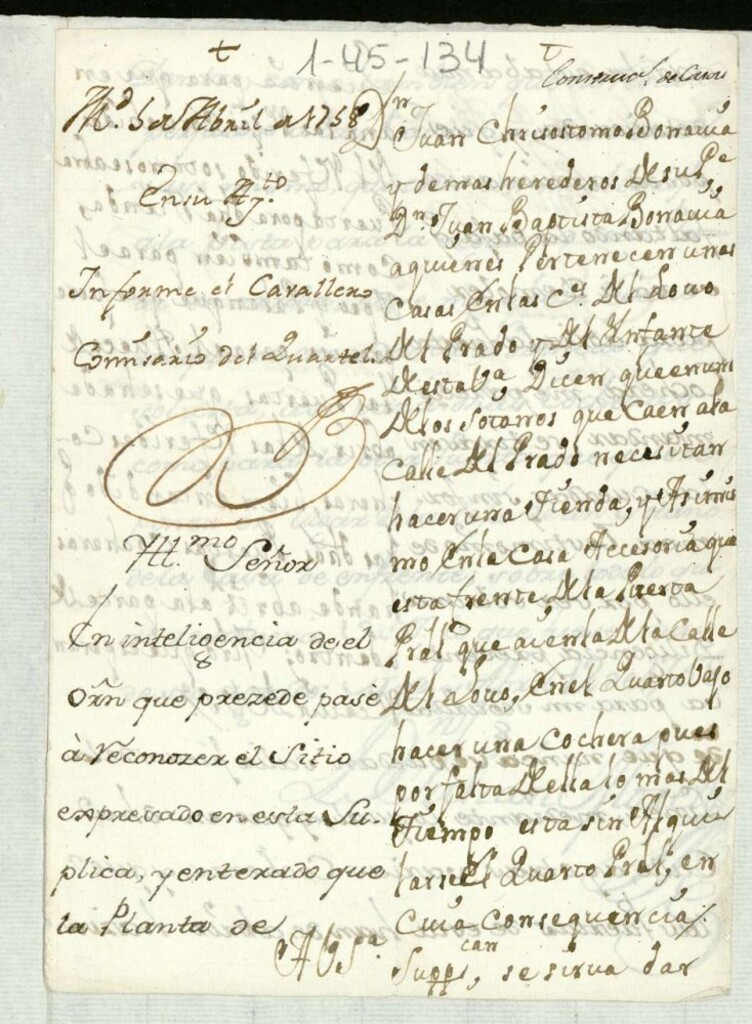 1-45-134
Md. 5 de Abril de 1758
En su Ay.to
Informe el Cavallero
Comisario del Quartel.
Ill.mo Señor
En inteligencia de el
Orn que prezede pasè
à reconozer el Sitio
expresado en esta Su-
plica, y enterado que
la Planta de
Dn Juan Chrisostomo Bonavia
y demas herederos de su Pe
Dn. Juan Baptista Bonavia
aquienes Pertenecen unas
Casas en las C.s del Lovo
del Prado y del Infante
de esta Va, Dicen que en uno
de los sotanos que Caen ala
Calle del Prado necesitan
hacer una Tienda, y Asimis
mo en la Casa Accesoria que
esta frente de la Puerta
Pral que acienta de la Calle
del Lovo, en el Quarto bajo
hacer una Cochera pues
por falta de ella lo mas del
Tiempo esta sin Alqui
larse el Quarto Pral, en
Cuia Consequencia
A V.S.a
Suppcan, se sirva dar